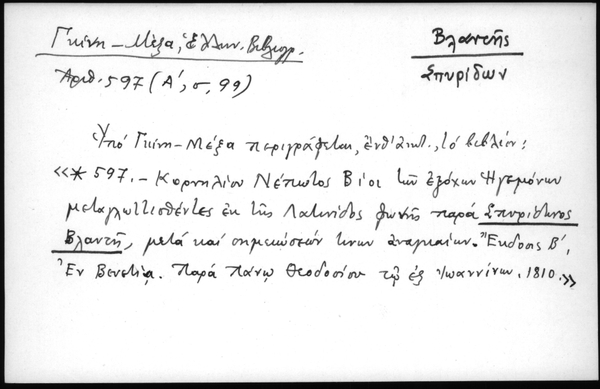 Γκίνη – Μέξα, Ἑλλην. Βιβλιογρ.
Ἀριθ. 597 (Α΄, σ, 99)
Βλαντῆς
Σπυρίδων
Ὑπό Γκίνη-Μέξα περιγράφεται, ἐνθ' ἀνωτ., τό βιβλίον:
«* 597. – Κορνηλίου Νέπωτος Βίοι τῶν ἐξόχων Ἡγεμόνων
μεταγλωττισθέντες ἐκ τῆς Λατινίδος φωνῆς παρά Σπυρίδωνος
Βλαντῆ, μετά καί σημειώσεών τινων ἀναγκαίων. Ἔκδοσις Β΄.
Ἐν Βενετίᾳ. Παρά Πάνῳ Θεοδοσίου τῷ ἐξ Ἰωαννίνων. 1810.»